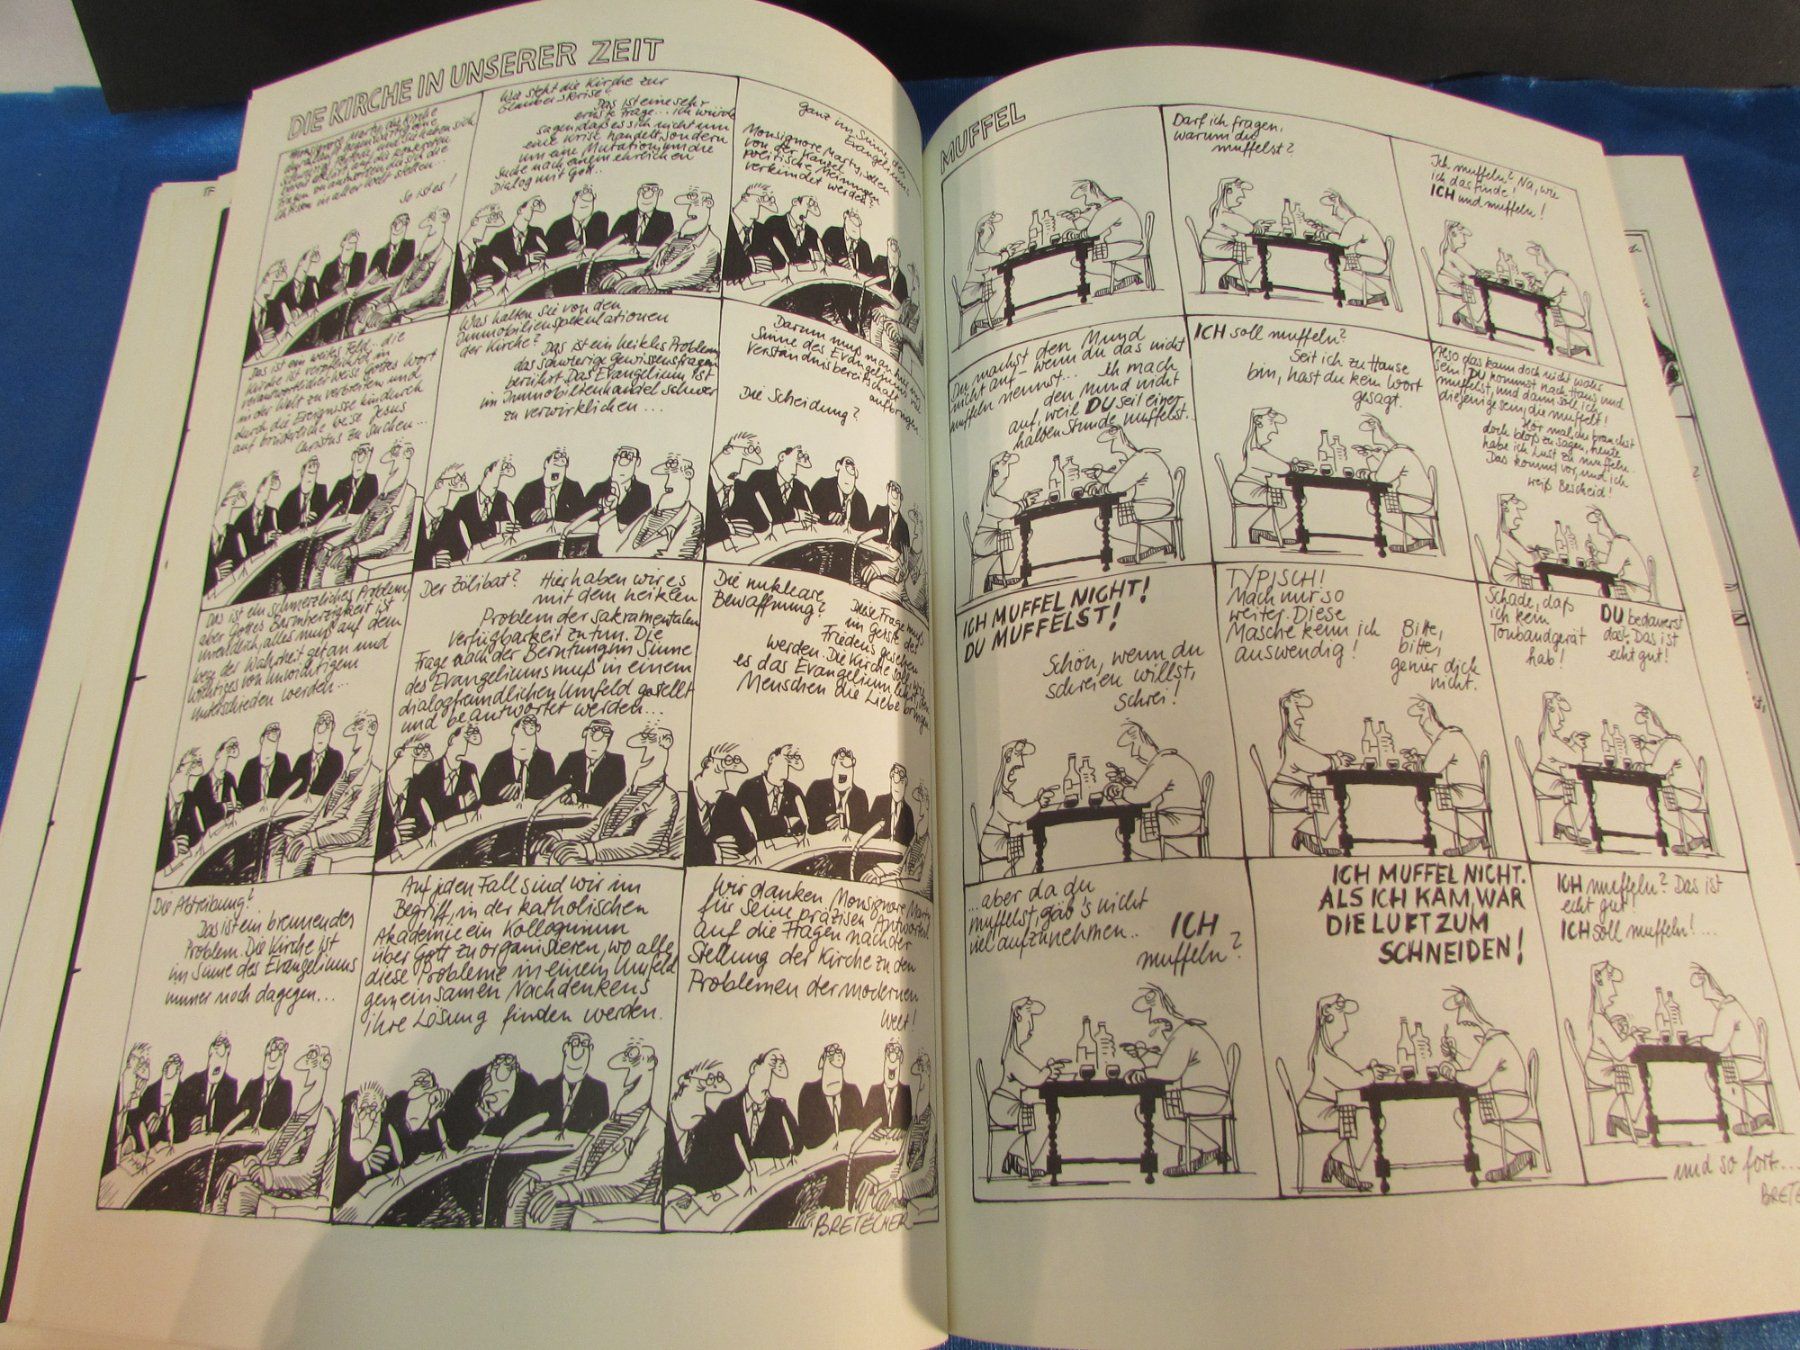 DIE KIRCHE IN UNSERER ZEIT
So ist es!
Wie steht die Kirche zur
Glaubenskrise?
Das ist eine sehr
ernste Frage... Ich würde
sagen, daß es sich nicht um
eine Krise handelt, sondern
um eine Mutation, um die
Suche nach einem ehrlichen
Dialog mit Gott...
ganz im Sinne des
Evangeliums
Monsignore Marty, sollen
von der Kanzel
politische Meinungen
verkündet werden?
Das ist ein weites Feld... die
Kirche ist verpflichtet, in
verantwortlicher Weise Gottes Wort
in der Welt zu verbreiten und
durch die Ereignisse hindurch
auf brüderliche Weise Jesus
Christus zu suchen...
Was halten Sie von den
Immobilienspekulationen
der Kirche?
Das ist ein heikles Problem,
das schwierige Gewissensfragen
berührt. Das Evangelium ist
im Immobilienhandel schwer
zu verwirklichen...
Darum muß man hier im
Sinne des Evangeliums viel
Verständnisbereitschaft
aufbringen
Die Scheidung?
Das ist ein schmerzliches Problem,
aber Gottes Barmherzigkeit ist
unendlich, alles muß auf dem
Weg der Wahrheit getan und
Wichtiges von Unwichtigem
unterschieden werden...
Der Zölibat?
Hier haben wir es
mit dem heiklen
Problem der sakramentalen
Verfügbarkeit zu tun. Die
Frage nach der Berufung im Sinne
des Evangeliums muß in einem
dialogfreundlichen Umfeld gestellt
und beantwortet werden...
Die nukleare
Bewaffnung?
Diese Frage muß
im Geiste des
Friedens gesehen
werden. Die Kirche soll
es das Evangelium lehrt, den
Menschen die Liebe bringen
Die Abtreibung?
Das ist ein brennendes
Problem. Die Kirche ist
im Sinne des Evangeliums
immer noch dagegen...
Auf jeden Fall sind wir im
Begriff, in der katholischen
Akademie ein Kolloquium
über Gott zu organisieren, wo alle
diese Probleme in einem Umfeld
gemeinsamen Nachdenkens
ihre Lösung finden werden.
Wir danken Monsignore Marty
für seine präzisen Antworten
auf die Fragen nach der
Stellung der Kirche zu den
Problemen der modernen
Welt!
BRETECHER
MUFFEL
Darf ich fragen,
warum du
muffelst?
Ich muffeln? Na, wie
ich das finde!
ICH und muffeln!
Du machst den Mund
nicht auf – wenn du das nicht
muffeln nennst...
Ich mach
den Mund nicht
auf, weil DU seit einer
halben Stunde muffelst...
ICH soll muffeln?
Seit ich zu Hause
bin, hast du kein Wort
gesagt.
Also das kann doch nicht wahr
sein! DU kommst nach Haus und
muffelst, und dann soll ich
diejenige sein, die muffelt!
Hör mal, du brauchst
doch bloß zu sagen, heute
habe ich Lust zu muffeln...
Das kommt vor, und ich
weiß Bescheid!
ICH MUFFEL NICHT!
DU MUFFELST!
Schön, wenn du
schreien willst,
schrei!
TYPISCH!
Mach nur so
weiter. Diese
Masche kenn ich
auswendig!
Bitte,
bitte,
genier dich
nicht.
Schade, daß
ich kein
Tonbandgerät
hab!
DU bedauerst
das. Das ist
echt gut!
...aber da du
muffelst, gäb's nicht
viel aufzunehmen..
ICH
muffeln?
ICH MUFFEL NICHT.
ALS ICH KAM, WAR
DIE LUFT ZUM
SCHNEIDEN!
ICH muffeln? Das ist
echt gut!
ICH soll muffeln!...
und so fort...